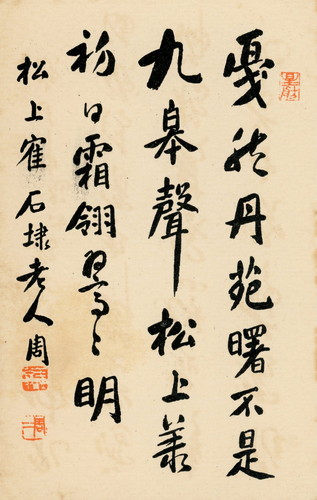 戞然丹苑曙不是
九皋聲松上
初日霜翎翯々明
松上寉石埭老人周